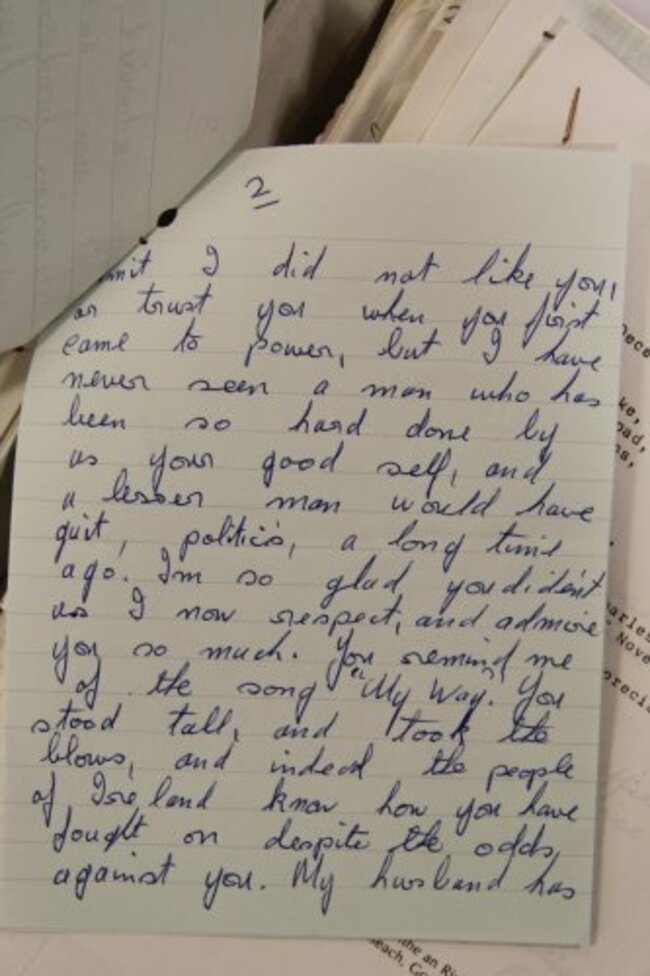 2/
mit I did not like you,
or trust you when you first
came to power, but I have
never seen a man who has
been so hard done by
as your good self, and
a lesser man would have
quit, politics, a long time
ago. I'm so glad you dident
as I now respect, and admire
you so much. You remind me
of the song "My Way". You
stood tall, and took the
blows, and indeed the people
of Ireland know how you have
fought on despite the odds,
against you. My husband has
Dece
ke,
oad,
na,
arles
Nove
precia
the an Ri
Beach, Go